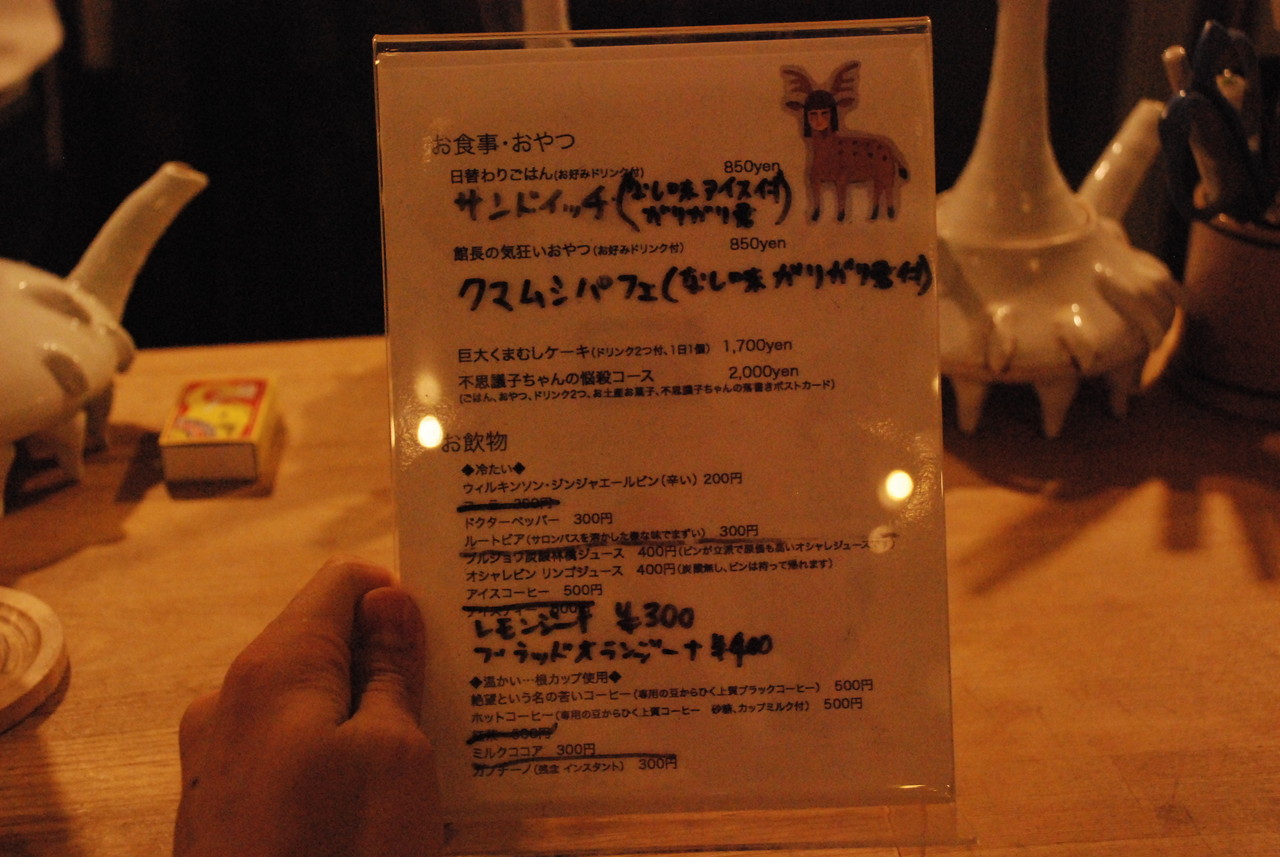 お食事・おやつ
日替わりごはん(お好みドリンク付) 850yen
サンドイッチ(なし味アイス付
ガリガリ君)
館長の気狂いおやつ(お好みドリンク付) 850yen
クマムシパフェ(なし味ガリガリ君付)
巨大くまむしケーキ(ドリンク2つ付、1日1個) 1,700yen
不思議子ちゃんの悩殺コース 2,000yen
(ごはん、おやつ、ドリンク2つ、お土産お菓子、不思議子ちゃんの落書きポストカード)
お飲物
◆冷たい◆
ウィルキンソン・ジンジャエールビン(辛い) 200円
コーラ 300円
ドクターペッパー 300円
ルートビア(サロンパスを溶かした様な味でまずい) 300円
炭酸林檎ジュース 400円(ビンが立派で原価も高いオシャレジュース
オシャレビン リンゴジュース 400円(炭酸無し、ビンは持って帰れます)
アイスコーヒー 500円
アイスティー 500円
レモンジーナ ¥300
ブラッドオランジーナ ¥400
◆温かい…根カップ使用◆
絶望という名の苦いコーヒー(専用の豆からひく上質ブラックコーヒー) 500円
ホットコーヒー(専用の豆からひく上質コーヒー 砂糖、カップミルク付) 500円
300円
ミルクココア 300円
カプチーノ(残念 インスタント) 300円